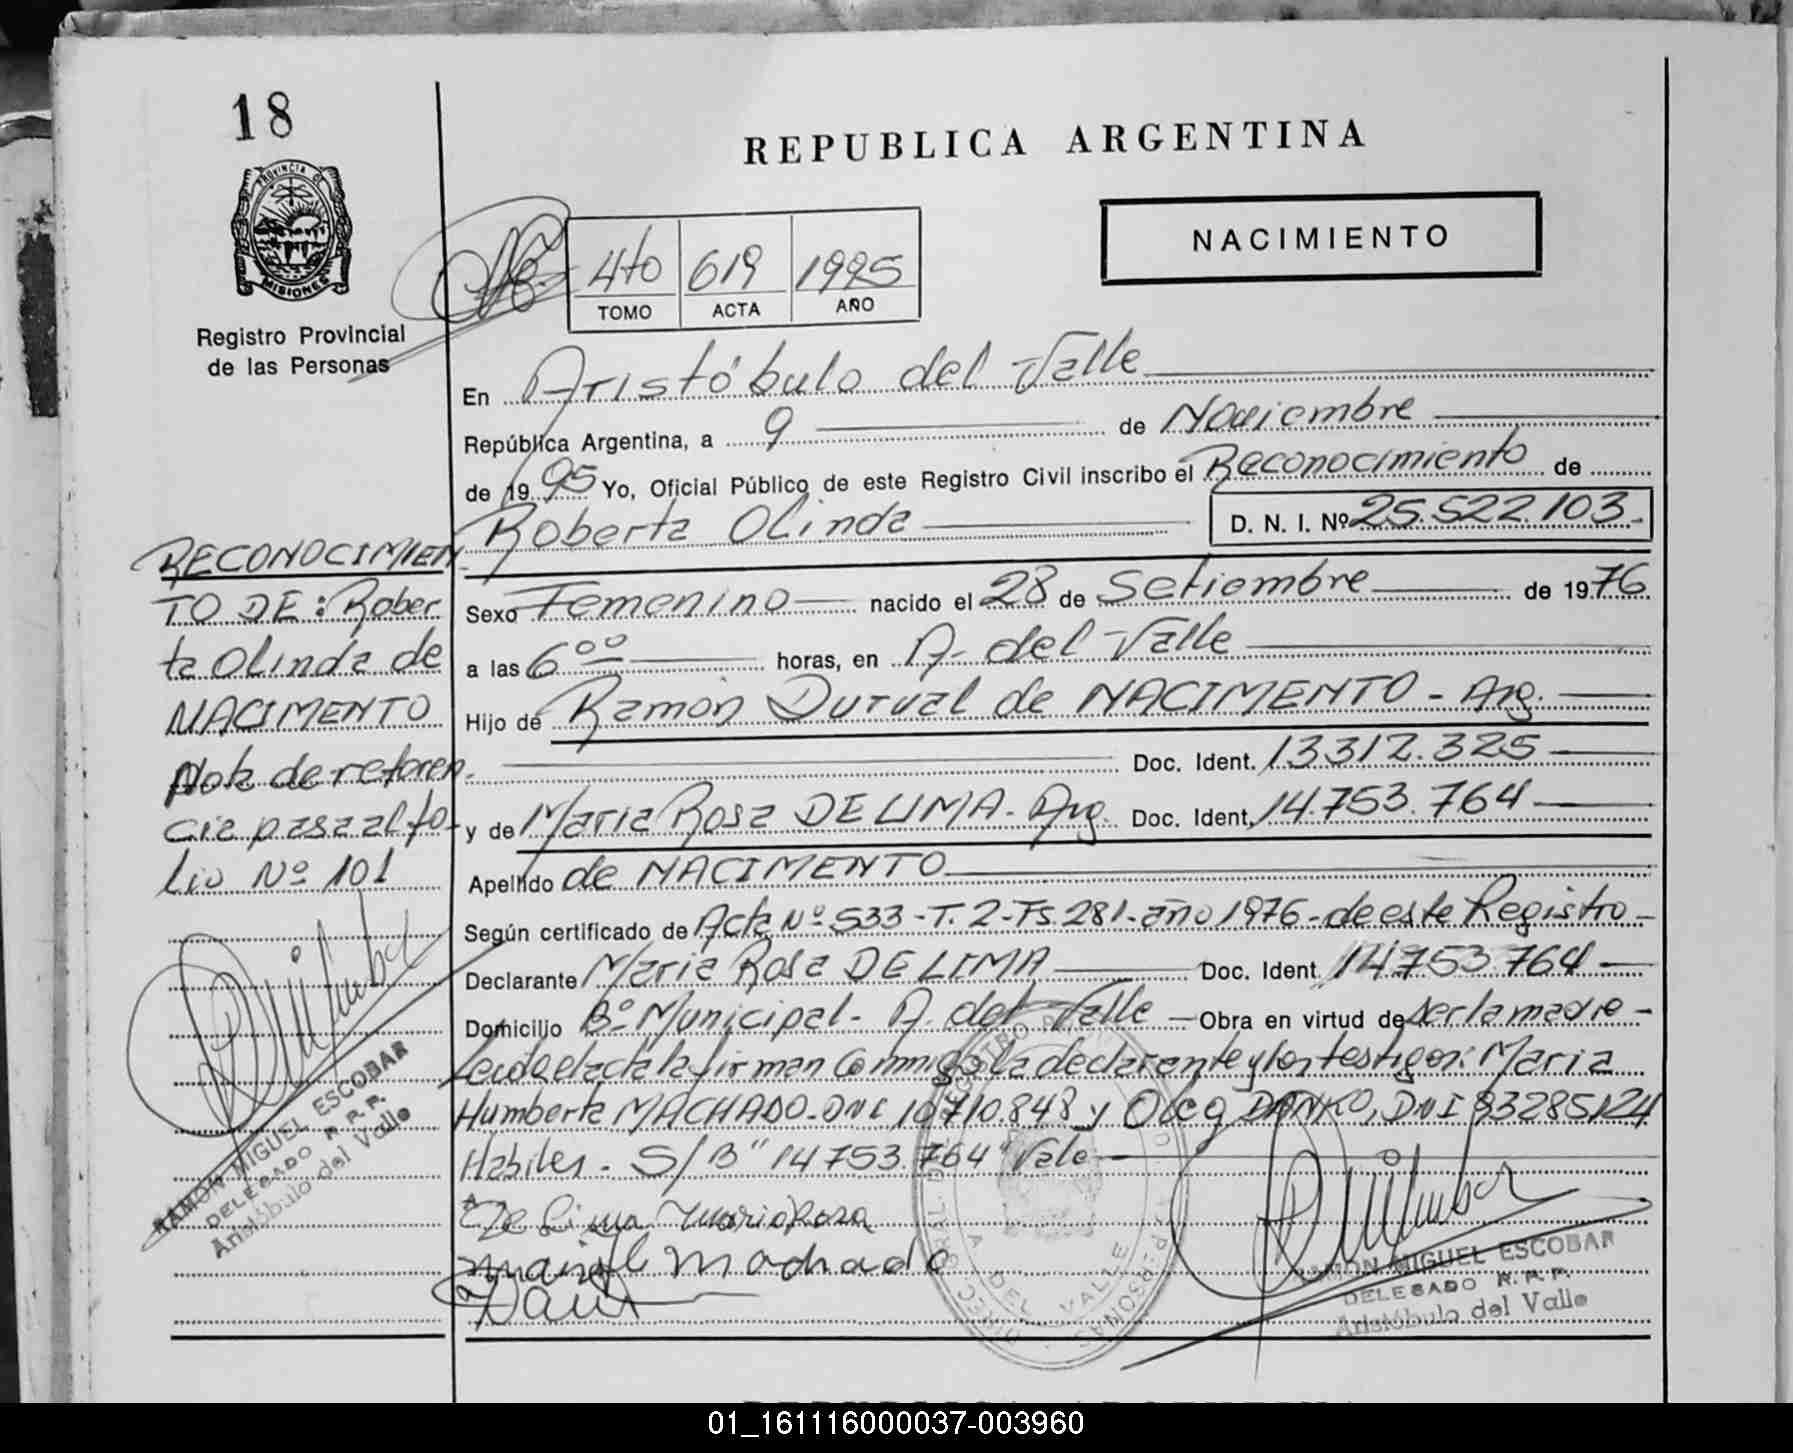 18
REPUBLICA ARGENTINA
NACIMIENTO
PROVINCIA DE
MISIONES
Registro Provincial
de las Personas
4to 619 1995
TOMO ACTA AÑO
En Aristóbulo del Valle
República Argentina, a 9 de Noviembre
de 1995 Yo, Oficial Público de este Registro Civil inscribo el Reconocimiento de
Roberta Olinda D. N. I. Nº 25.522.103.
Sexo Femenino nacido el 28 de Setiembre de 1976
a las 6°° horas, en A. del Valle
Hijo de Ramón Durval de NACIMENTO - Arg.
Doc. Ident. 13312.325
y de Maria Rosa DE LIMA - Arg. Doc. Ident. 14.753.764
Apellido de NACIMENTO
Según certificado de Acta Nº 533 - T. 2 - Fs 281 - año 1976 - de este Registro -
Declarante Maria Rosa DE LIMA Doc. Ident. 14753764
Domicilio Bº Municipal - A. del Valle - Obra en virtud de ser la madre -
Leida el acta la firman Conmigo la declarante y los testigos: Maria
Humberta MACHADO - DNI 10710.848 y Olég DANKO, DNI 93285124
Habiles - S/B "14753.764" Vale -
De Lima Maria Rosa
Machado
RECONOCIMIEN
TO DE: Rober
ta Olinda de
NACIMENTO
Nota de referen
cia pasa al fo-
lio Nº 101
RAMON MIGUEL ESCOBAR
DELEGADO R.P.P.
Aristóbulo del Valle
RAMON MIGUEL ESCOBAR
DELEGADO R.P.P.
Aristóbulo del Valle
A. DEL VALLE
01_161116000037-003960